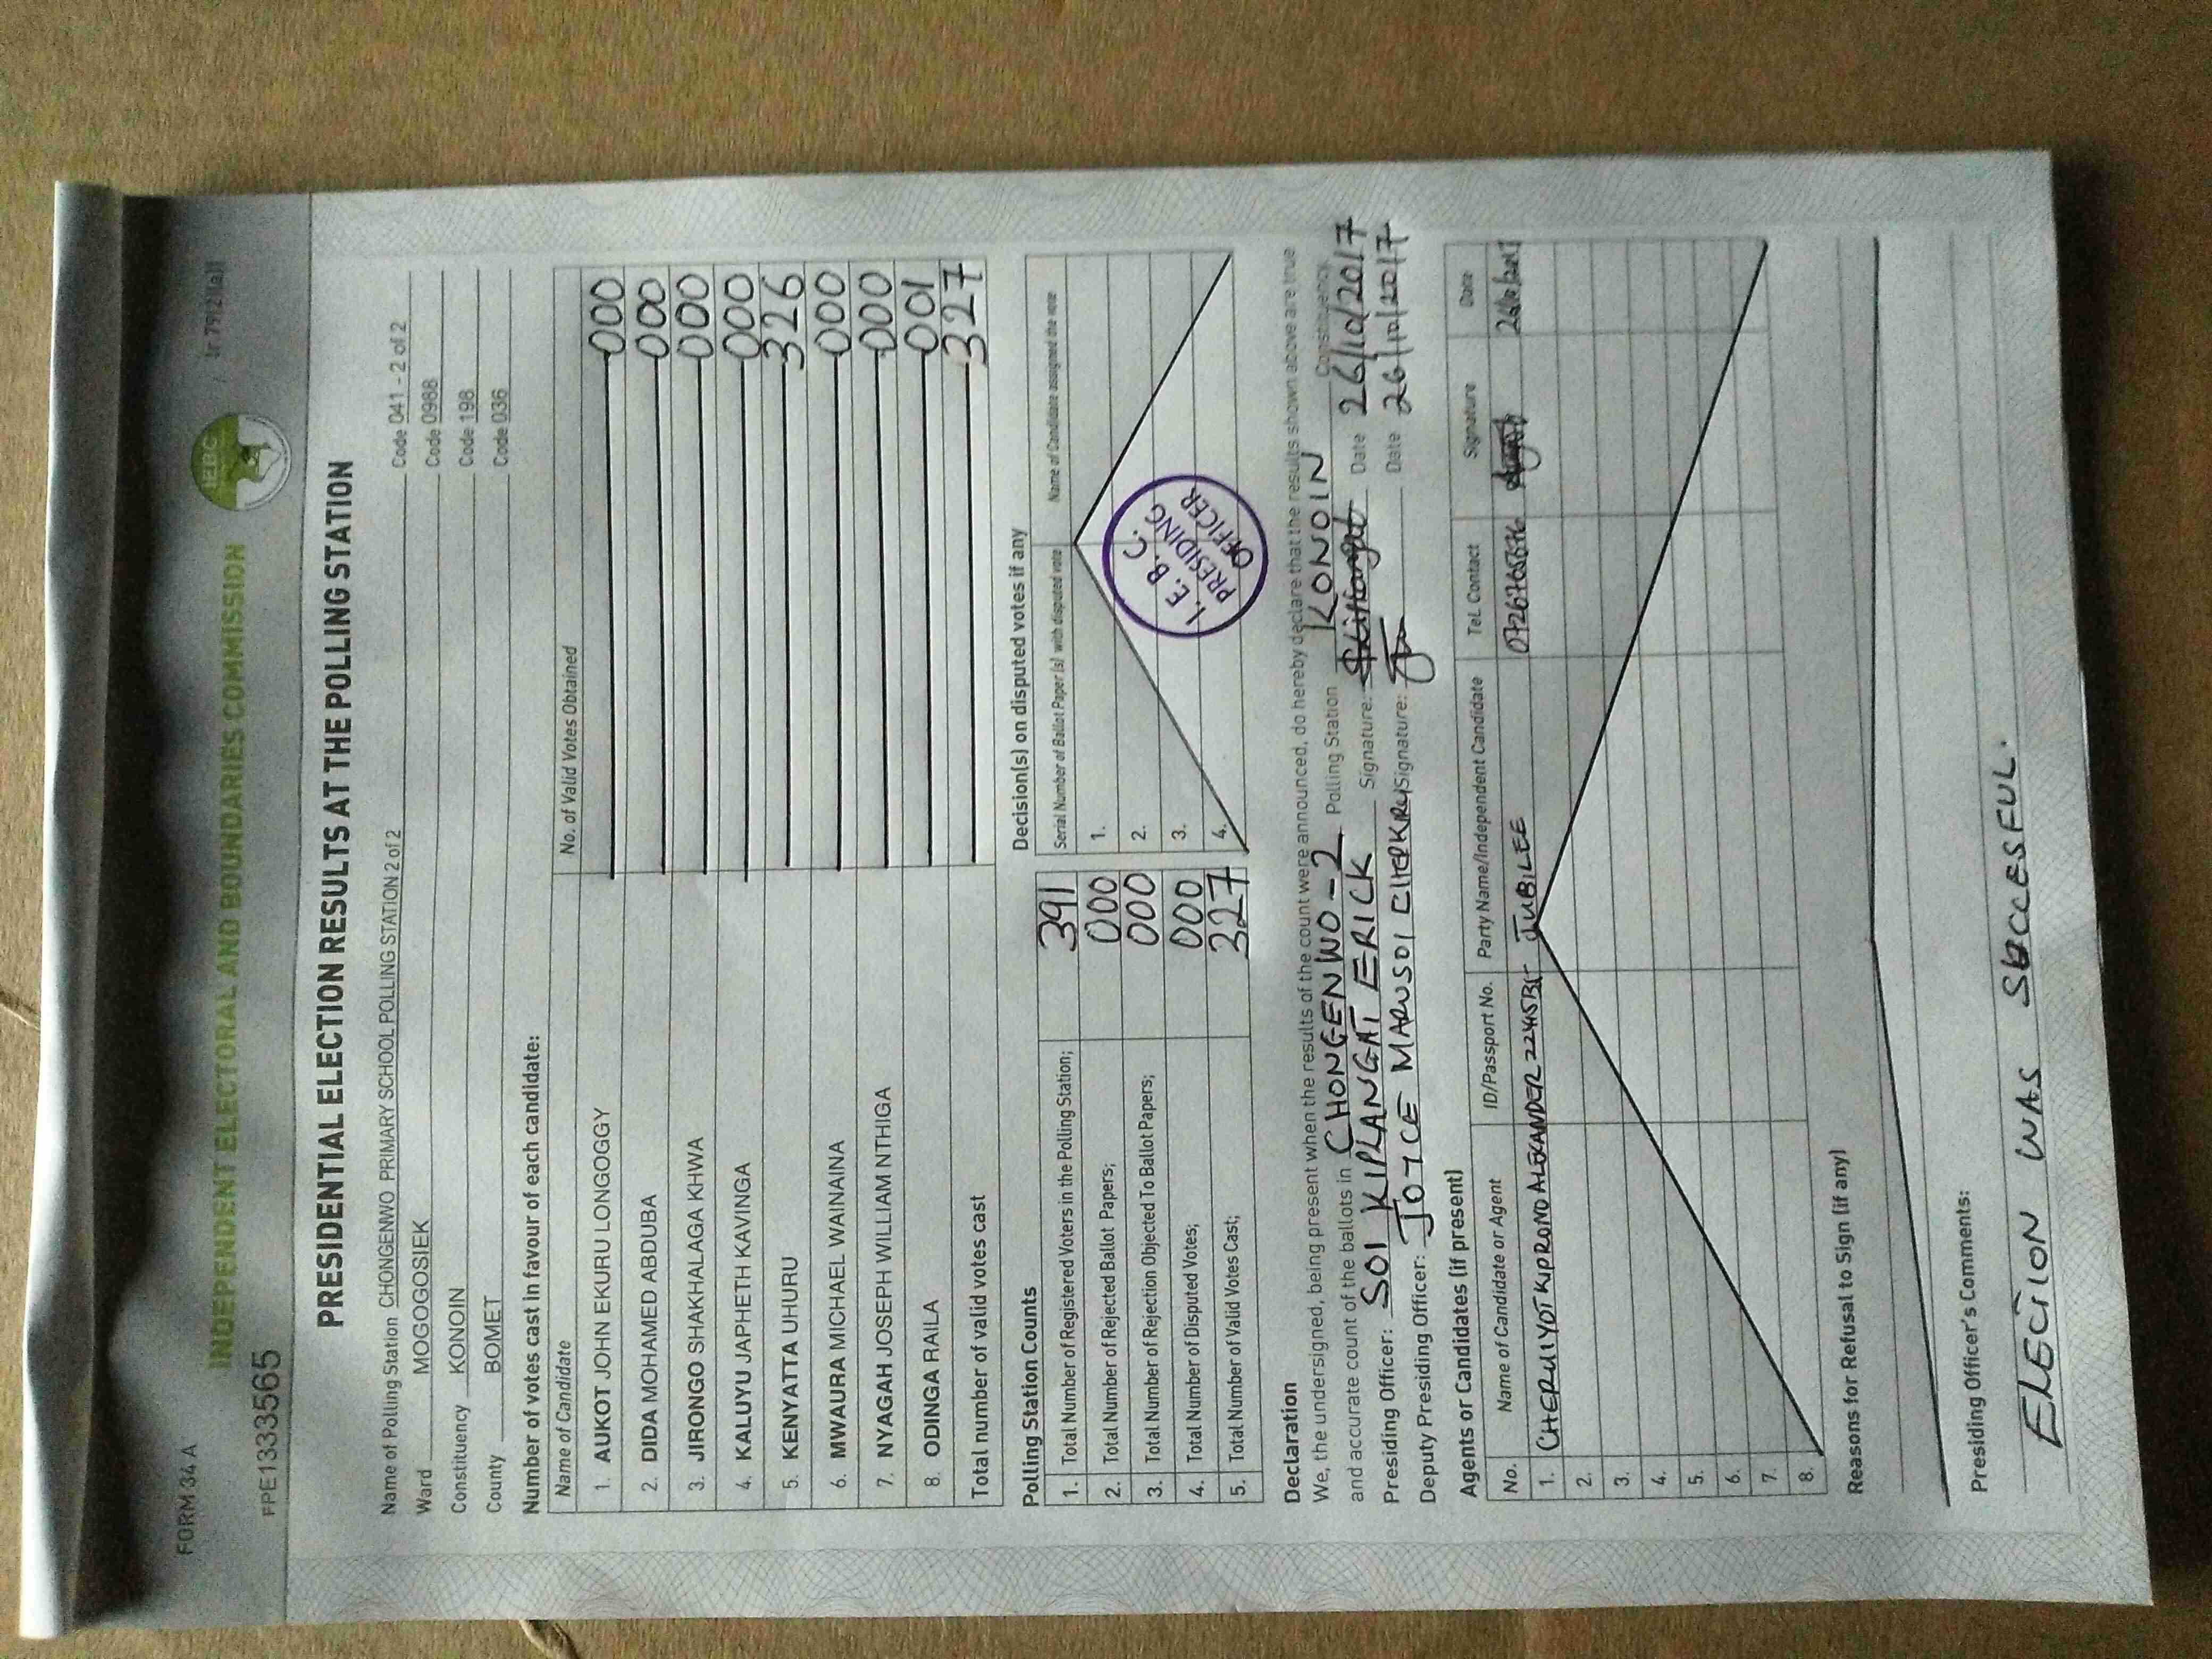 FORM 34 A
INDEPENDENT ELECTORAL AND BOUNDARIES COMMISSION
IEBC
FPE1333565
PRESIDENTIAL ELECTION RESULTS AT THE POLLING STATION
Name of Polling Station CHONGENWO PRIMARY SCHOOL POLLING STATION 2 of 2 Code 041 - 2 of 2
Ward MOGOGOSIEK Code 0988
Constituency KONOIN Code 198
County BOMET Code 036
Number of votes cast in favour of each candidate:
Name of Candidate No. of Valid Votes Obtained
1. AUKOT JOHN EKURU LONGOGGY 000
2. DIDA MOHAMED ABDUBA 000
3. JIRONGO SHAKHALAGA KHWA 000
4. KALUYU JAPHETH KAVINGA 000
5. KENYATTA UHURU 326
6. MWAURA MICHAEL WAINAINA 000
7. NYAGAH JOSEPH WILLIAM NTHIGA 000
8. ODINGA RAILA 001
Total number of valid votes cast 327
Polling Station Counts
1. Total Number of Registered Voters in the Polling Station; 391
2. Total Number of Rejected Ballot Papers; 000
3. Total Number of Rejection Objected To Ballot Papers; 000
4. Total Number of Disputed Votes; 000
5. Total Number of Valid Votes Cast; 327
Decision(s) on disputed votes if any
Serial Number of Ballot Paper (s) with disputed vote Name of Candidate assigned the vote
1.
2.
3.
4.
I. E. B. C.
PRESIDING
OFFICER
Declaration
We, the undersigned, being present when the results of the count were announced, do hereby declare that the results shown above are true
and accurate count of the ballots in CHONGENWO - 2 Polling Station KONOIN Constituency
Presiding Officer: SOI KIPLANGAT ERICK Signature: Date 26/10/2017
Deputy Presiding Officer: JOYCE MARUSOI Signature: Date 26/10/2017
Agents or Candidates (if present)
No. Name of Candidate or Agent ID/Passport No. Party Name/Independent Candidate Tel. Contact Signature Date
1. CHERUIYOT KIPRONO ALEXANDER JUBILEE 26/10/2017
2.
3.
4.
5.
6.
7.
8.
Reasons for Refusal to Sign (if any)
Presiding Officer's Comments:
ELECTION WAS SUCCESFUL.